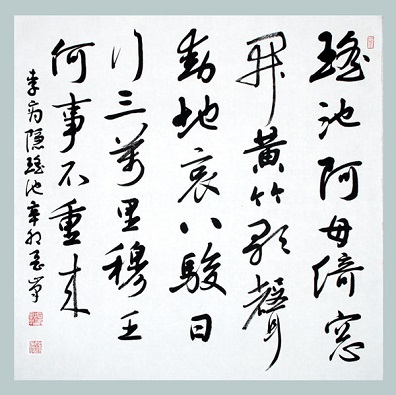 瑤池阿母綺窓
開黃竹歌聲
動地哀八駿日
行三萬里穆王
何事不重來
李商隱瑤池辛卯